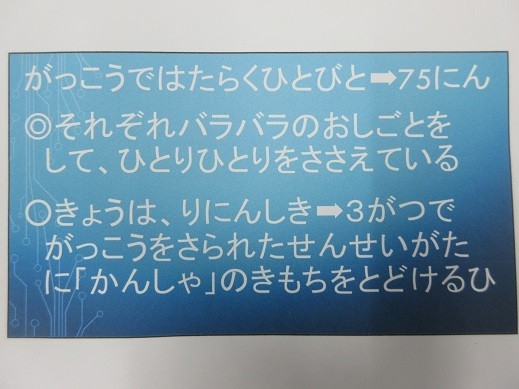 がっこうではたらくひとびと➡75にん
◎それぞれバラバラのおしごとを
して、ひとりひとりをささえている
○きょうは、りにんしき➡3がつで
がっこうをさられたせんせいがた
に「かんしゃ」のきもちをとどけるひ